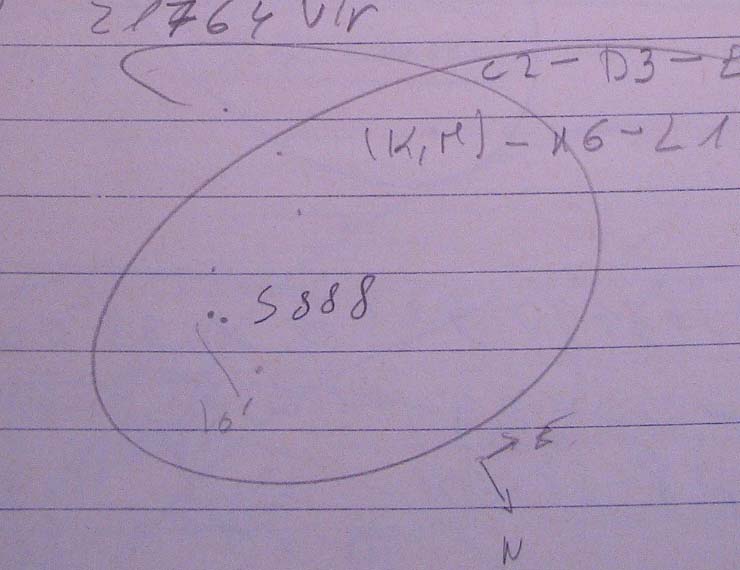 21764 V/r
C2-D3-E
(K,M)-N6-Z1
S888
10'
E
N